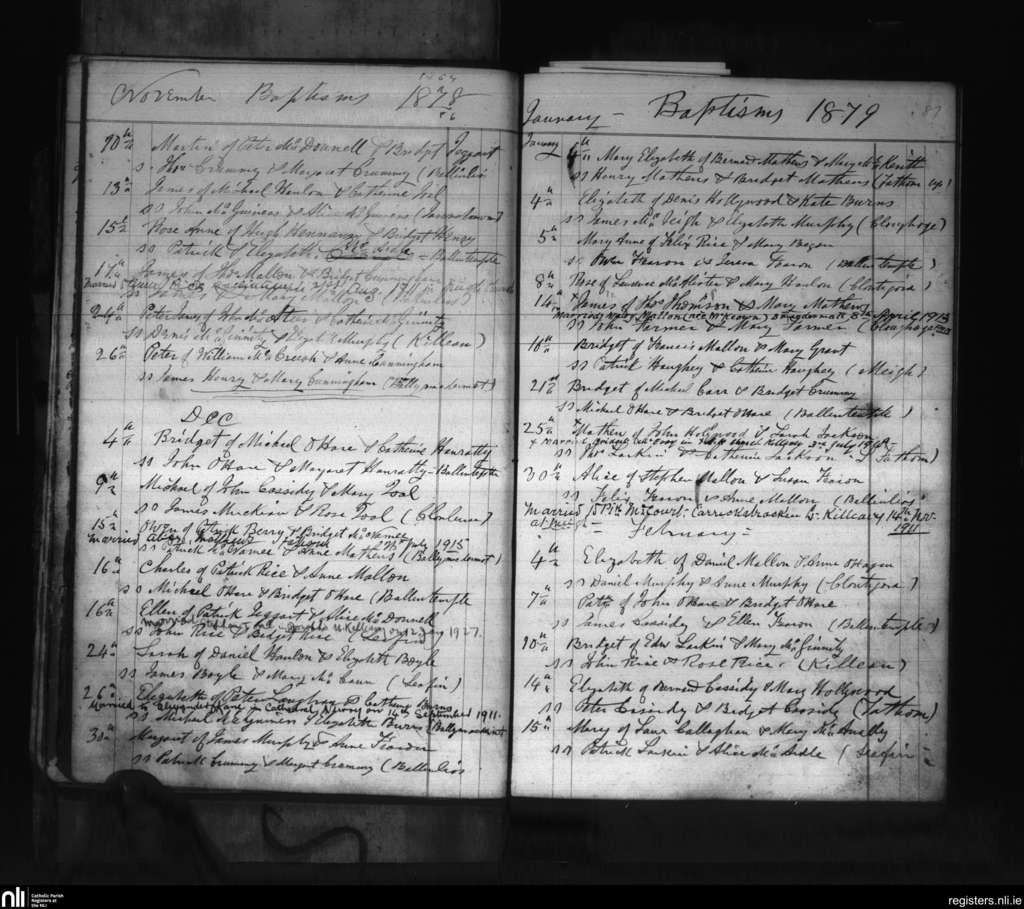 November Baptisms 1878
10th Martin of Peter McDonnell & Bridget Taggart
ss Thos Crummy & Margaret Crummy (Ballinliss
13th James of Michael Hanlon & Catherine Tool
ss John McGuiness & Alice McGuiness
15th Rose Anne of Hugh Hennavry & Bridget Henry
ss Patrick & Elizabeth = Ballintemple
17th James of Thos Mallon & Bridget Cunningham
married Aug 1911
ss James & Mary Mallon
24th Peter Henry of & Catherine McGinnity
ss Denis McGinnity & Elizth Murphy (Killean)
26th Peter of William McCreesh & Anne Cunningham
ss James Henry & Mary Cunningham (Ballymacdermot)
DEC
4th Bridget of Michael O'Hare & Catherine Hanratty
ss John O'Hare & Margaret Hanratty - Ballintemple
9th Michael of John Cassidy & Mary Tool
ss James Muckian & Rose Tool (Clonlum)
15th Owen of Patrick Berry & Bridget McNamee
married July 1915
ss Patrick McNamee & Anne Mathers (Ballymacdermot)
16th Charles of Patrick Rice & Anne Mallon
ss Michael O'Hare & Bridget O'Hare (Ballintemple
16th Ellen of Patrick Taggart & Alice McDonnell
married Killeavy on 12 Jany 1927.
ss John Rice & Bridget Rice
24th Sarah of Daniel Hanlon & Elizabeth Boyle
ss James Boyle & Mary McCann (Seafin)
26th Elizabeth of Peter & Catherine Burns
Married to Alexander in Cathedral, Newry on 14th September 1911.
ss Michael & Elizabeth Burns (Ballymacdermot
30th Margaret of James Murphy & Anne Fearon
ss Patrick Crummy & Margaret Crummy (Ballinliss
January - Baptisms 1879
87
January 4th Mary Elizabeth of Bernard Mathers & Mary McKevitt
ss Henry Mathers & Bridget Mathers (Fathom up)
4th Elizabeth of Denis Hollywood & Kate Burns
ss James McVeigh & Elizabeth Murphy (Cloughoge)
5th Mary Anne of Felix Rice & Mary Began
ss Owen Fearon & Teresa Fearon (Ballintemple)
8th Rose of Laurence McAlister & Mary Hanlon (Clontygora)
14th James of Thos Thomson & Mary Mathers
married Mary Mallon (nee McKeown) 8th April 1913
ss John Farmer & Mary Farmer (Cloughoge
18th Bridget of Francis Mallon & Mary Grant
ss Patrick Haughey & Catherine Haughey (Meigh)
21st Bridget of Michael Carr & Bridget Crummy
ss Michael O'Hare & Bridget O'Hare (Ballintemple)
25th Mathew of John Hollywood & Sarah Jackson
x married Bridget 3rd July
ss Jas Larkin & Catherine Jackson - (Fathom)
30th Alice of Stephen Mallon & Susan Fearon
ss Felix Fearon & Anne Mallon (Ballinliss)
Married McCourt. Carrickbracken in Killeavy 14th Nov. 1911
- February -
4th Elizabeth of Daniel Mallon & Anne O'Hagan
ss Daniel Murphy & Anne Murphy (Clontygora)
7th Patk of John O'Hare & Bridget O'Hare
ss James Cassidy & Ellen Fearon (Ballintemple)
10th Bridget of Edw Larkin & Mary McGinnity
ss John Rice & Rose Rice (Killean)
14th Elizabeth of Bernard Cassidy & Mary Hollywood
ss Peter Cassidy & Bridget Cassidy (Fathom)
15th Mary of Laur Callaghan & Mary McAnally
ss Patrick Larkin & Alice McArdle (Seafin -)
nli
Catholic Parish
Registers at
the NLI
registers.nli.ie